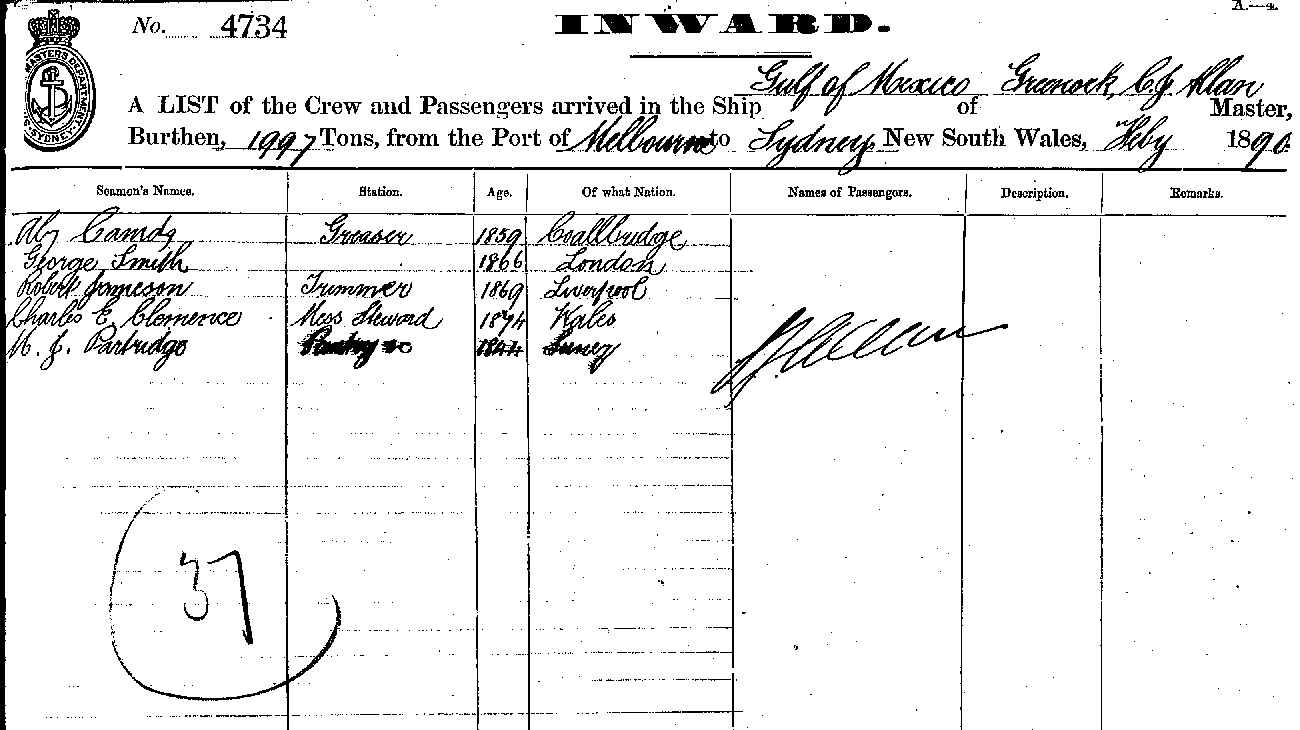 A.—4.
No. 4734 INWARD.
MASTERS DEPARTMENT SYDNEY
Gulf of Mexico Greenock, C.J. Allan
A LIST of the Crew and Passengers arrived in the Ship of Master,
Burthen, 1997 Tons, from the Port of Melbourne to Sydney, New South Wales, Feby 1890
Seamen's Names. Station. Age. Of what Nation. Names of Passengers. Description. Remarks.
Greaser 1859 Coallbridge
George Smith 1866 London
Robert Jameson Trimmer 1869 Liverpool
Charles E Clemence Mess Steward 1874 Wales
J. Partridge 1844
37